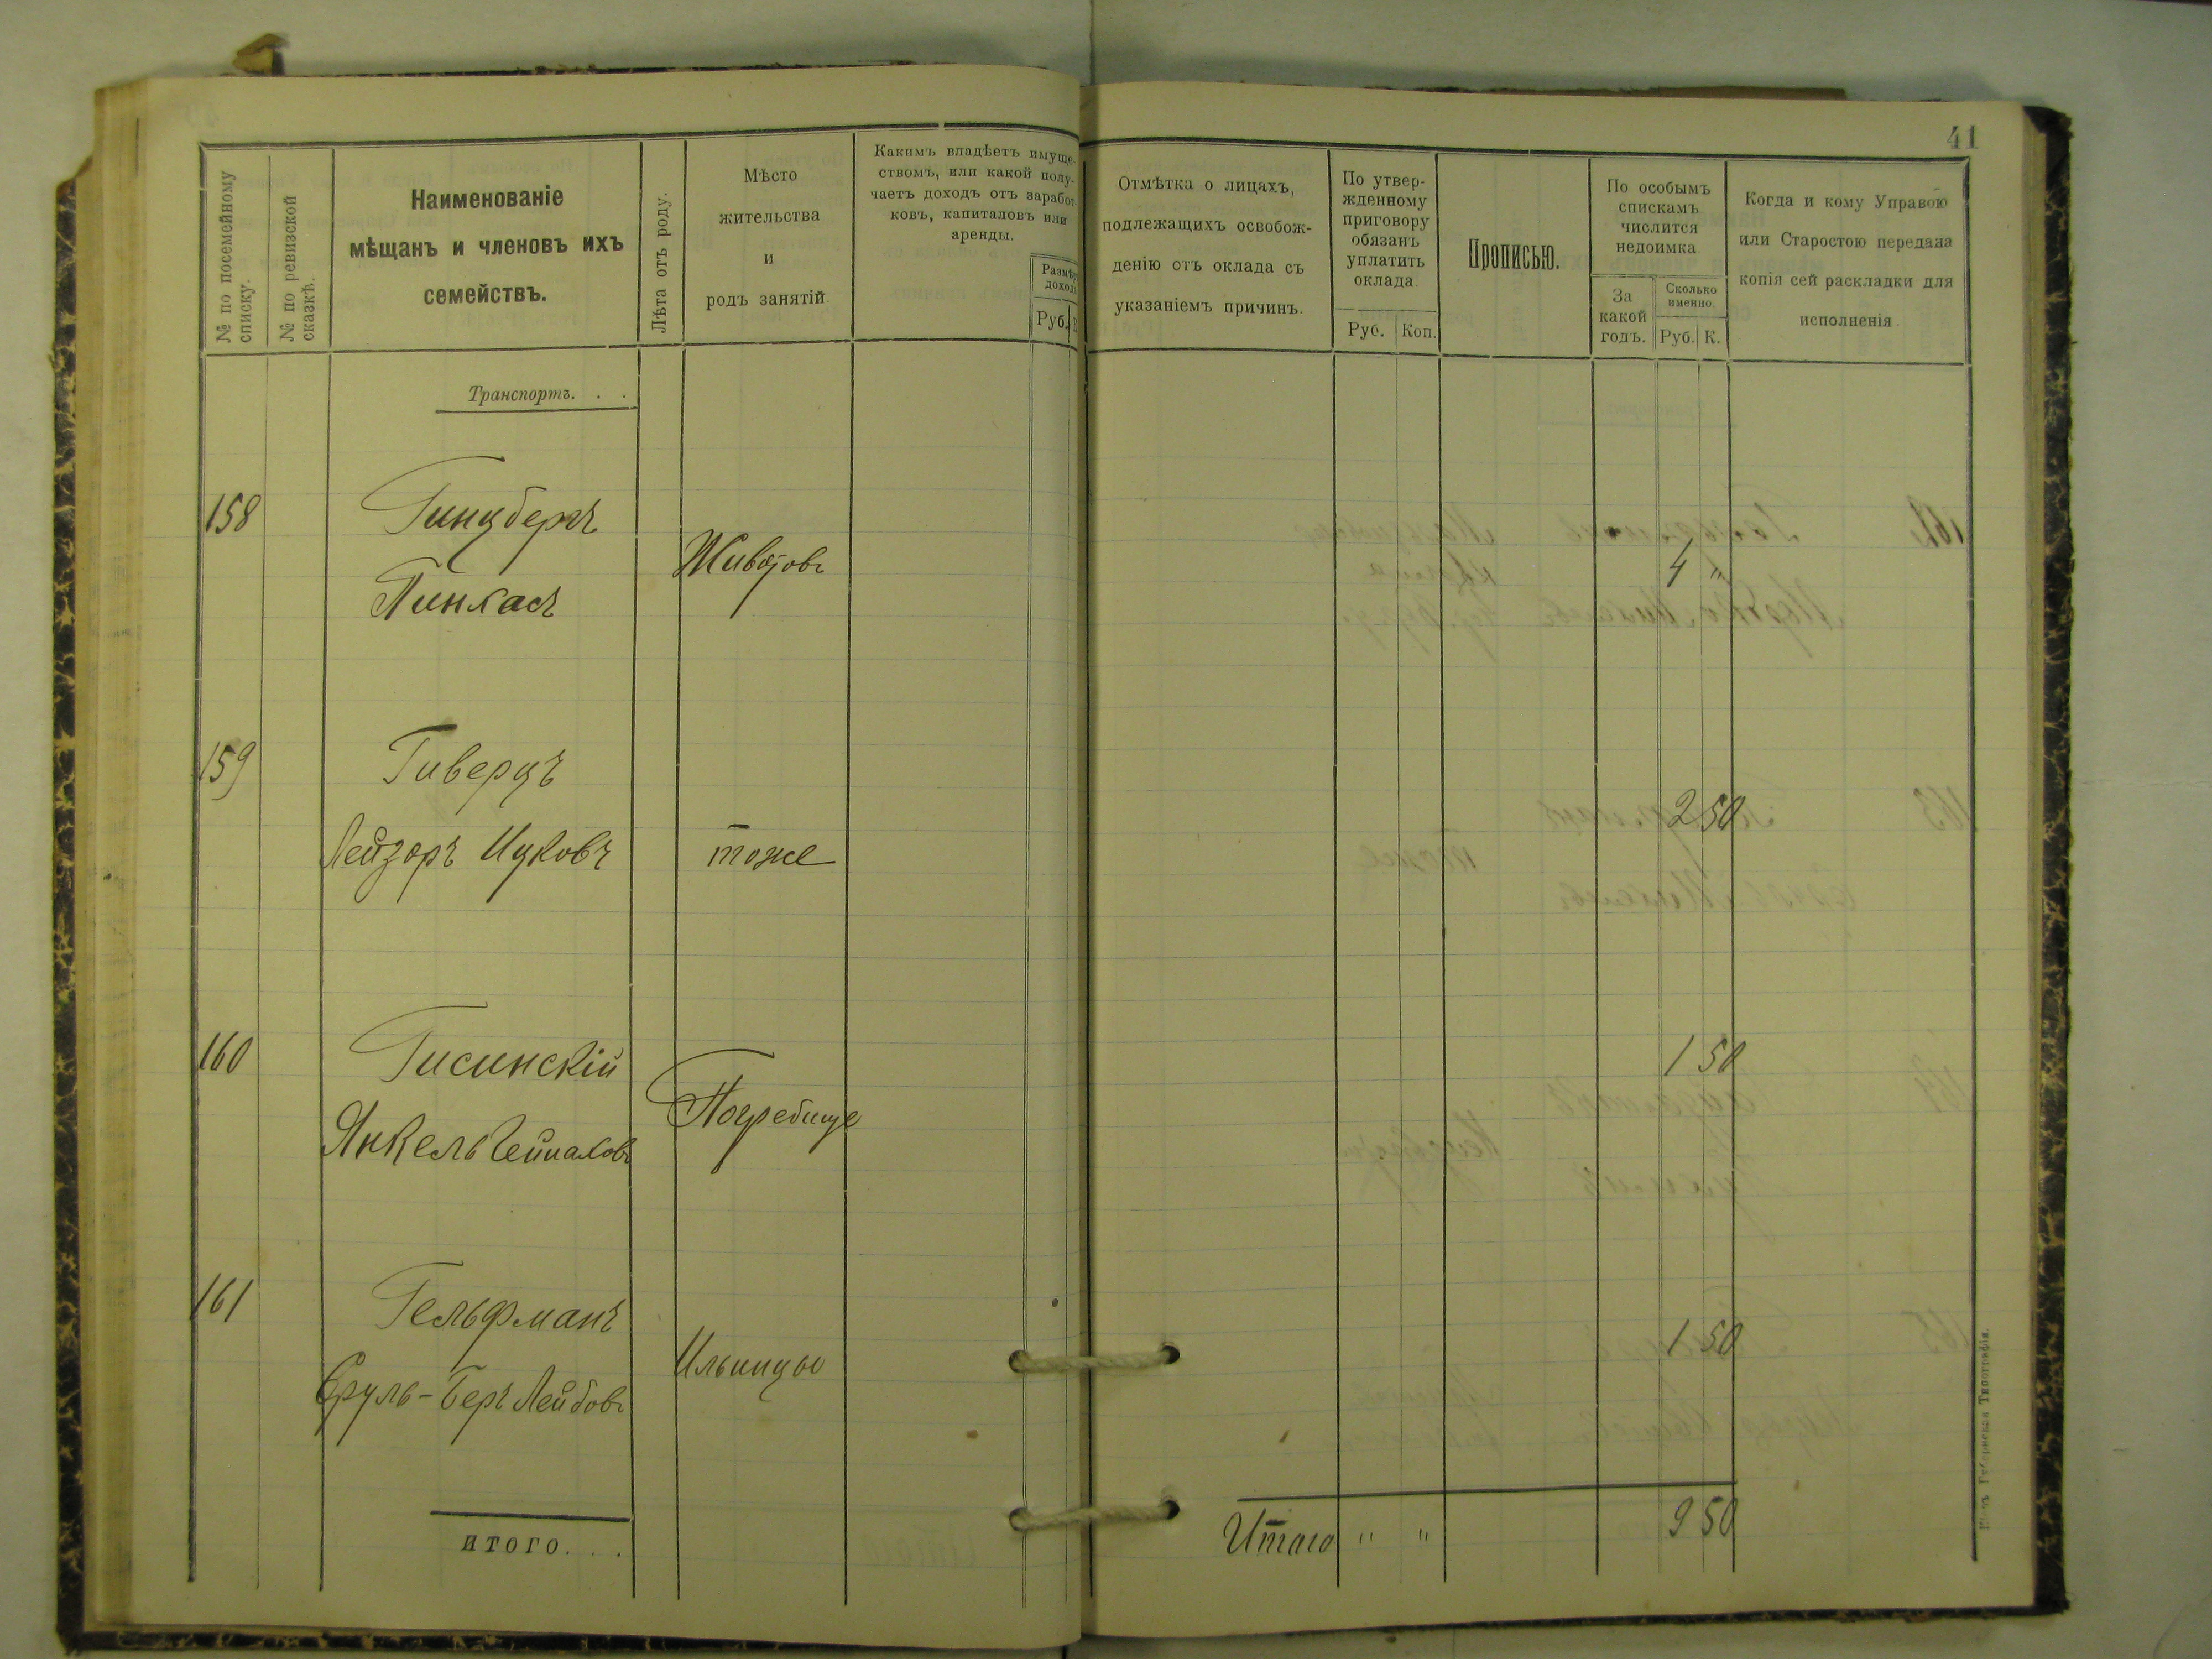 41
№ по посемейному списку.
№ по ревизской сказкѣ.
Наименованіе
мѣщанъ и членовъ ихъ
семействъ.
Лѣта отъ роду.
Мѣсто
жительства
и
родъ занятій.
Какимъ владѣетъ имуще-
ствомъ, или какой полу-
чаетъ доходъ отъ заработ-
ковъ, капиталовъ или
аренды.
Размѣръ
дохода
Руб.
Отмѣтка о лицахъ,
подлежащихъ освобож-
денію отъ оклада съ
указаніемъ причинъ.
По утвер-
жденному
приговору
обязанъ
уплатить
оклада.
Руб. Коп.
Прописью.
По особымъ
спискамъ
числится
недоимка.
За
какой
годъ.
Сколько
именно.
Руб. К.
Когда и кому Управою
или Старостою передана
копія сей раскладки для
исполненія.
Транспортъ. . .
158 Гинцбергъ
Пинхасъ
Животовъ
4 "
159 Гиверцъ
Лейзоръ Ицковъ
тоже
2 50
160 Гисинскій
Янкель
Погребище
1 50
161 Гельфманъ
Сруль-Беръ Лейбовъ
Ильинцы
1 50
ИТОГО. . .
Итого " " 9 50
Губернская Типографія.